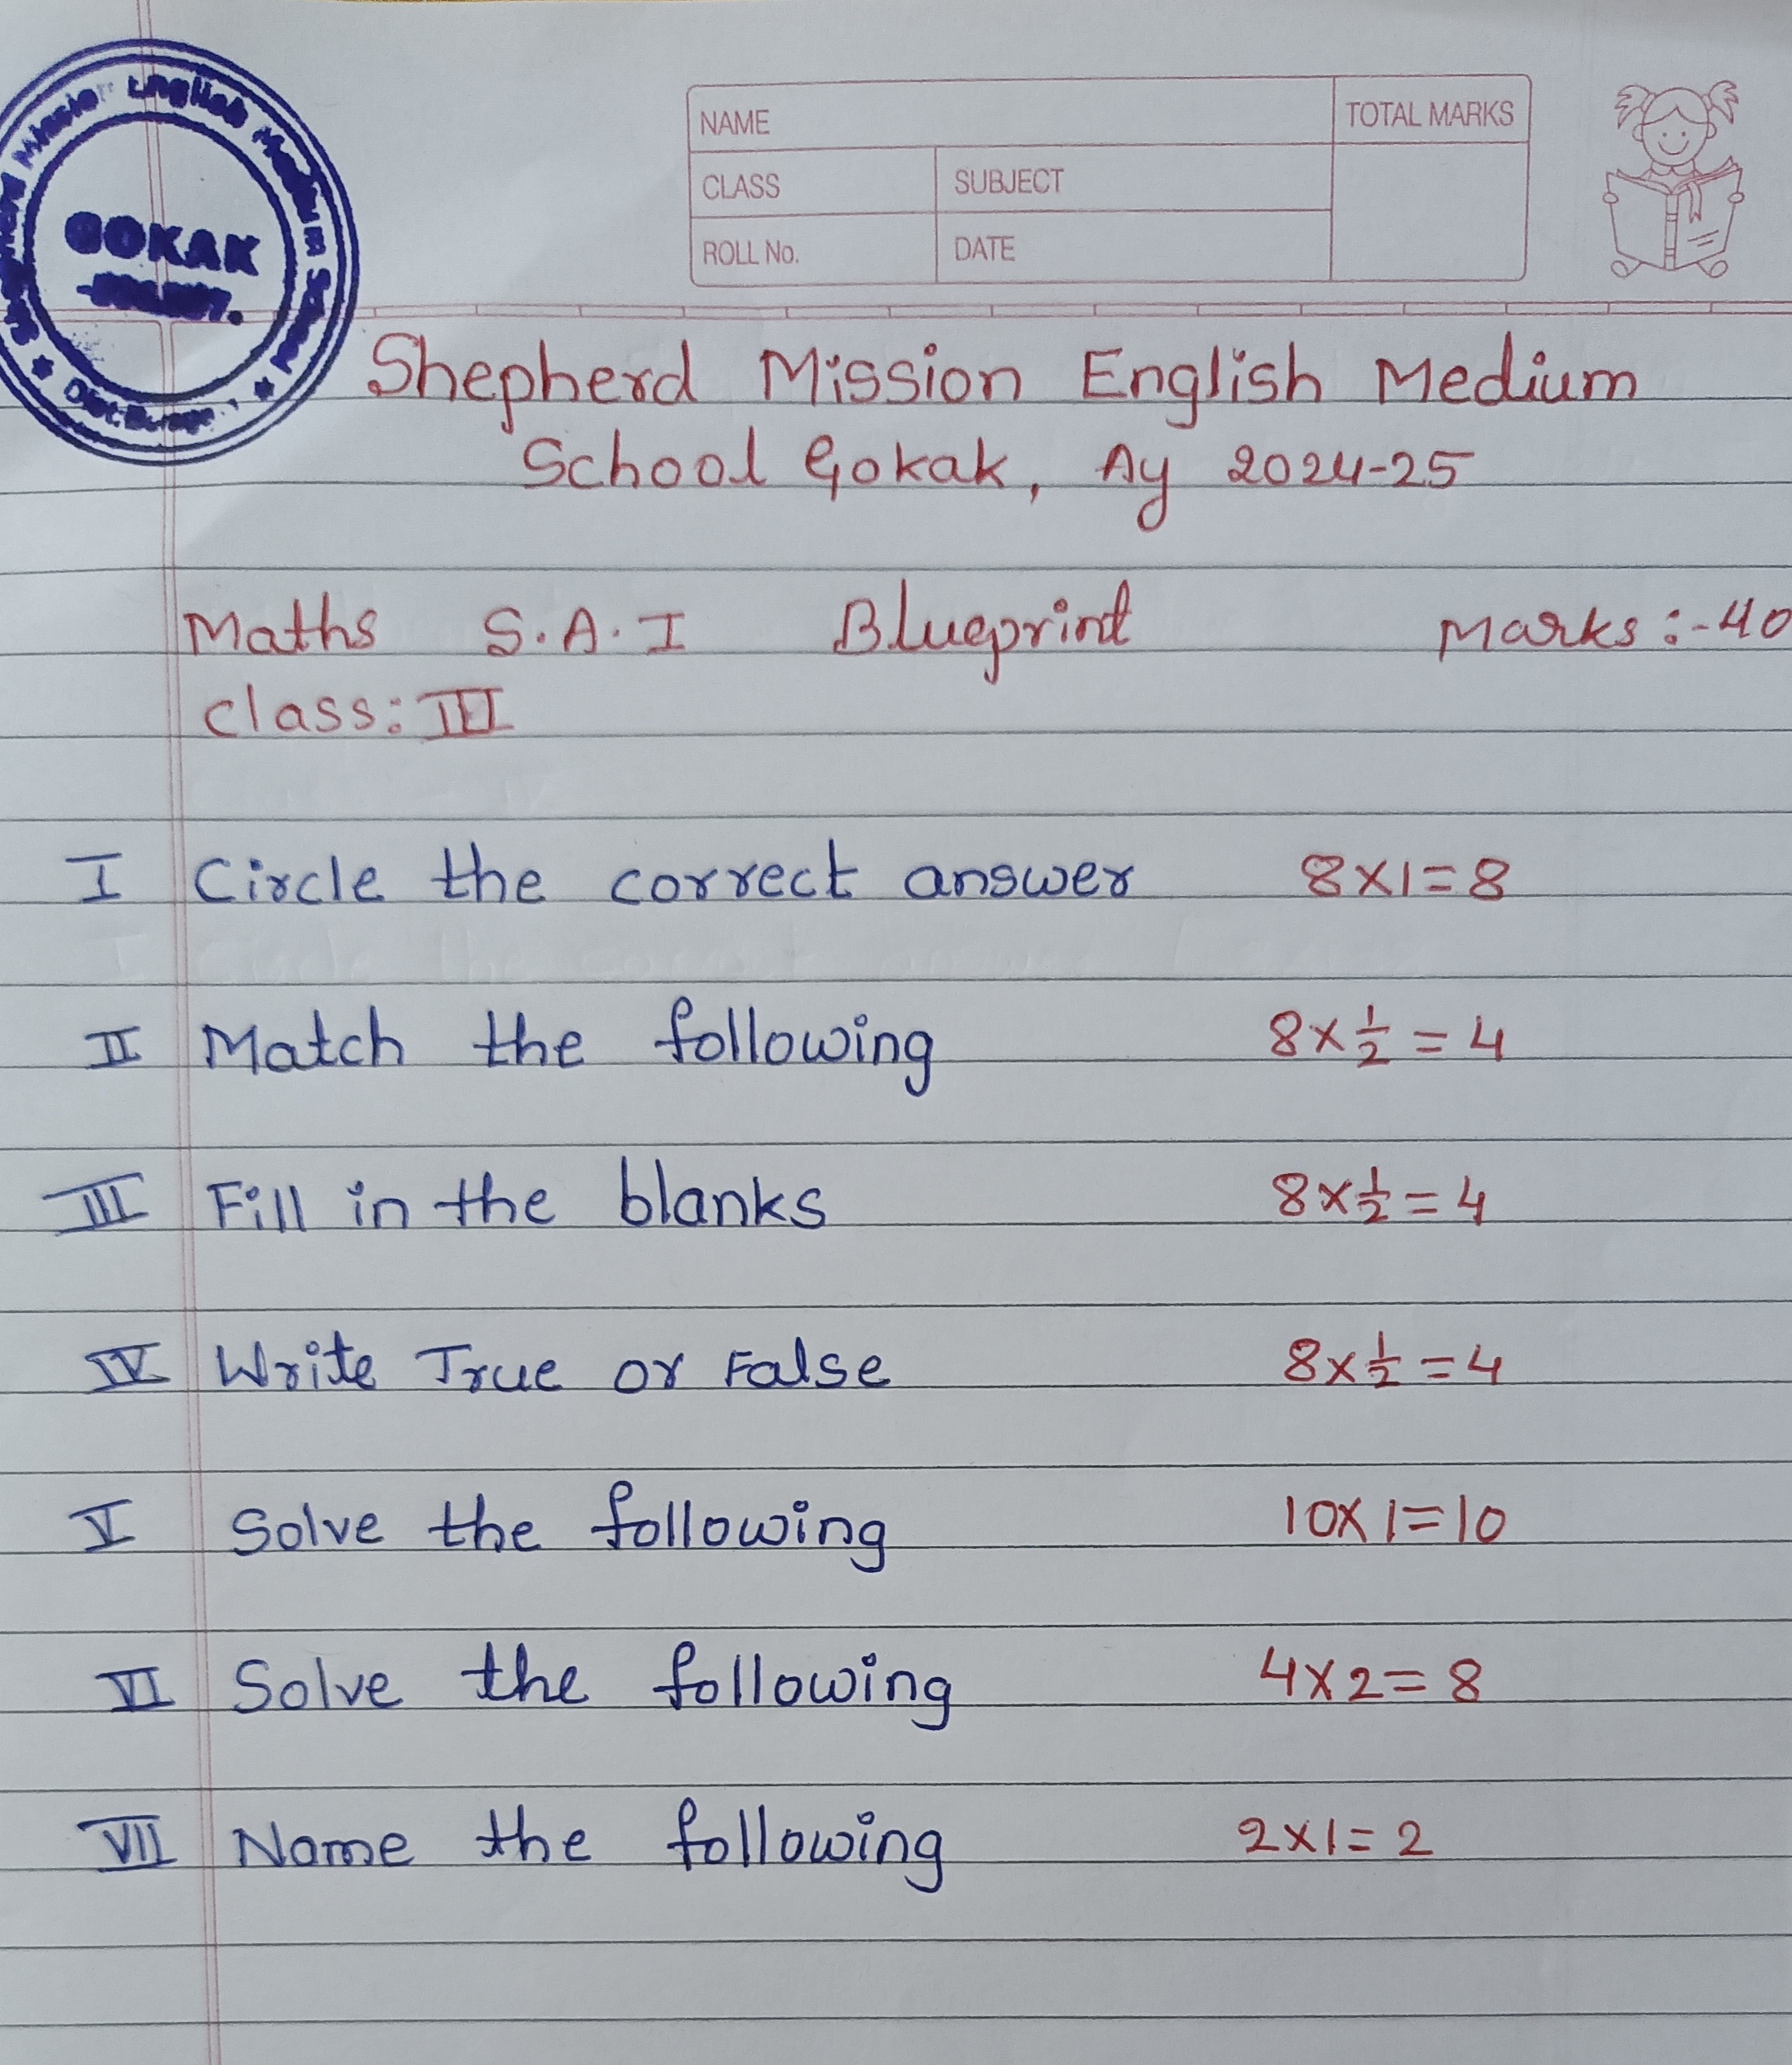 English Medium School
GOKAK
NAME
TOTAL MARKS
CLASS
SUBJECT
ROLL No.
DATE
Shepherd Mission English Medium
School Gokak, Ay 2024-25
Maths S.A.I Blueprint Marks:-40
class: III
I Circle the correct answer 8×1=8
II Match the following 8×½=4
III Fill in the blanks 8×½=4
IV Write True or False 8×½=4
V Solve the following 10×1=10
VI Solve the following 4×2=8
VII Name the following 2×1=2